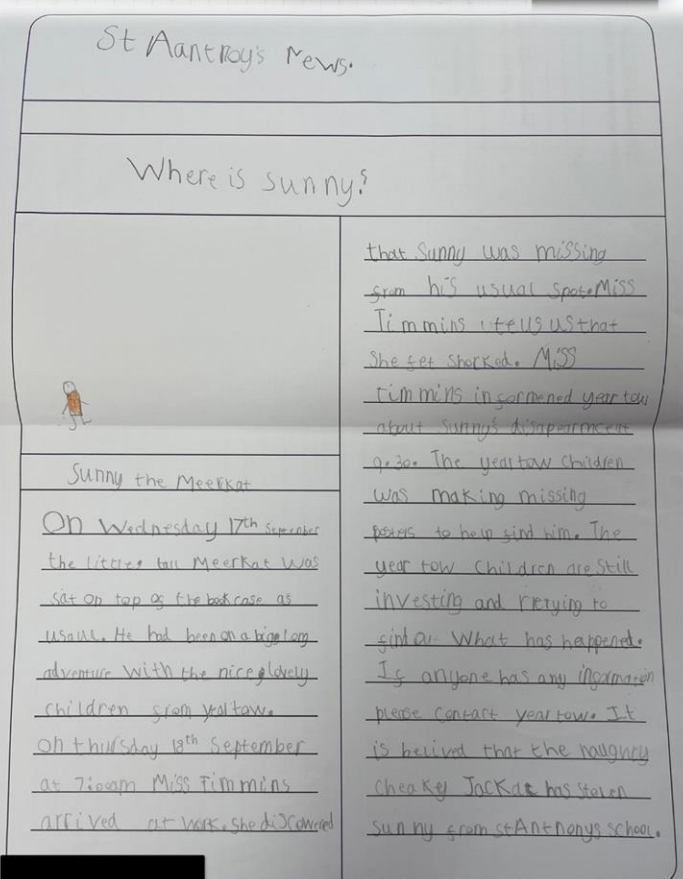 St Aantroy's News.
Where is sunny?
Sunny the Meerkat
On Wednesday 17th September
the littres tall Meerkat was
sat on top of the book case as
usaul. He had been on a bigg long
adventure with the nice lovely
children from year tow.
on thursday 18th September
at 7:00am Miss Timmins
arrived at work. she discowered
that Sunny was missing
from his usual spote. Miss
Timmins tells us that
She felt shocked. Miss
timmins informened year tow
about Sunny's disapearmceat
9:30. The year tow children
was making missing
posters to help find him. The
year tow children are still
investing and rterying to
find ou what has happened.
If anyone has any informateon
please contact year tow. It
is belived that the naughty
cheaky Jackat has stolen
sunny from st Antnonys school.